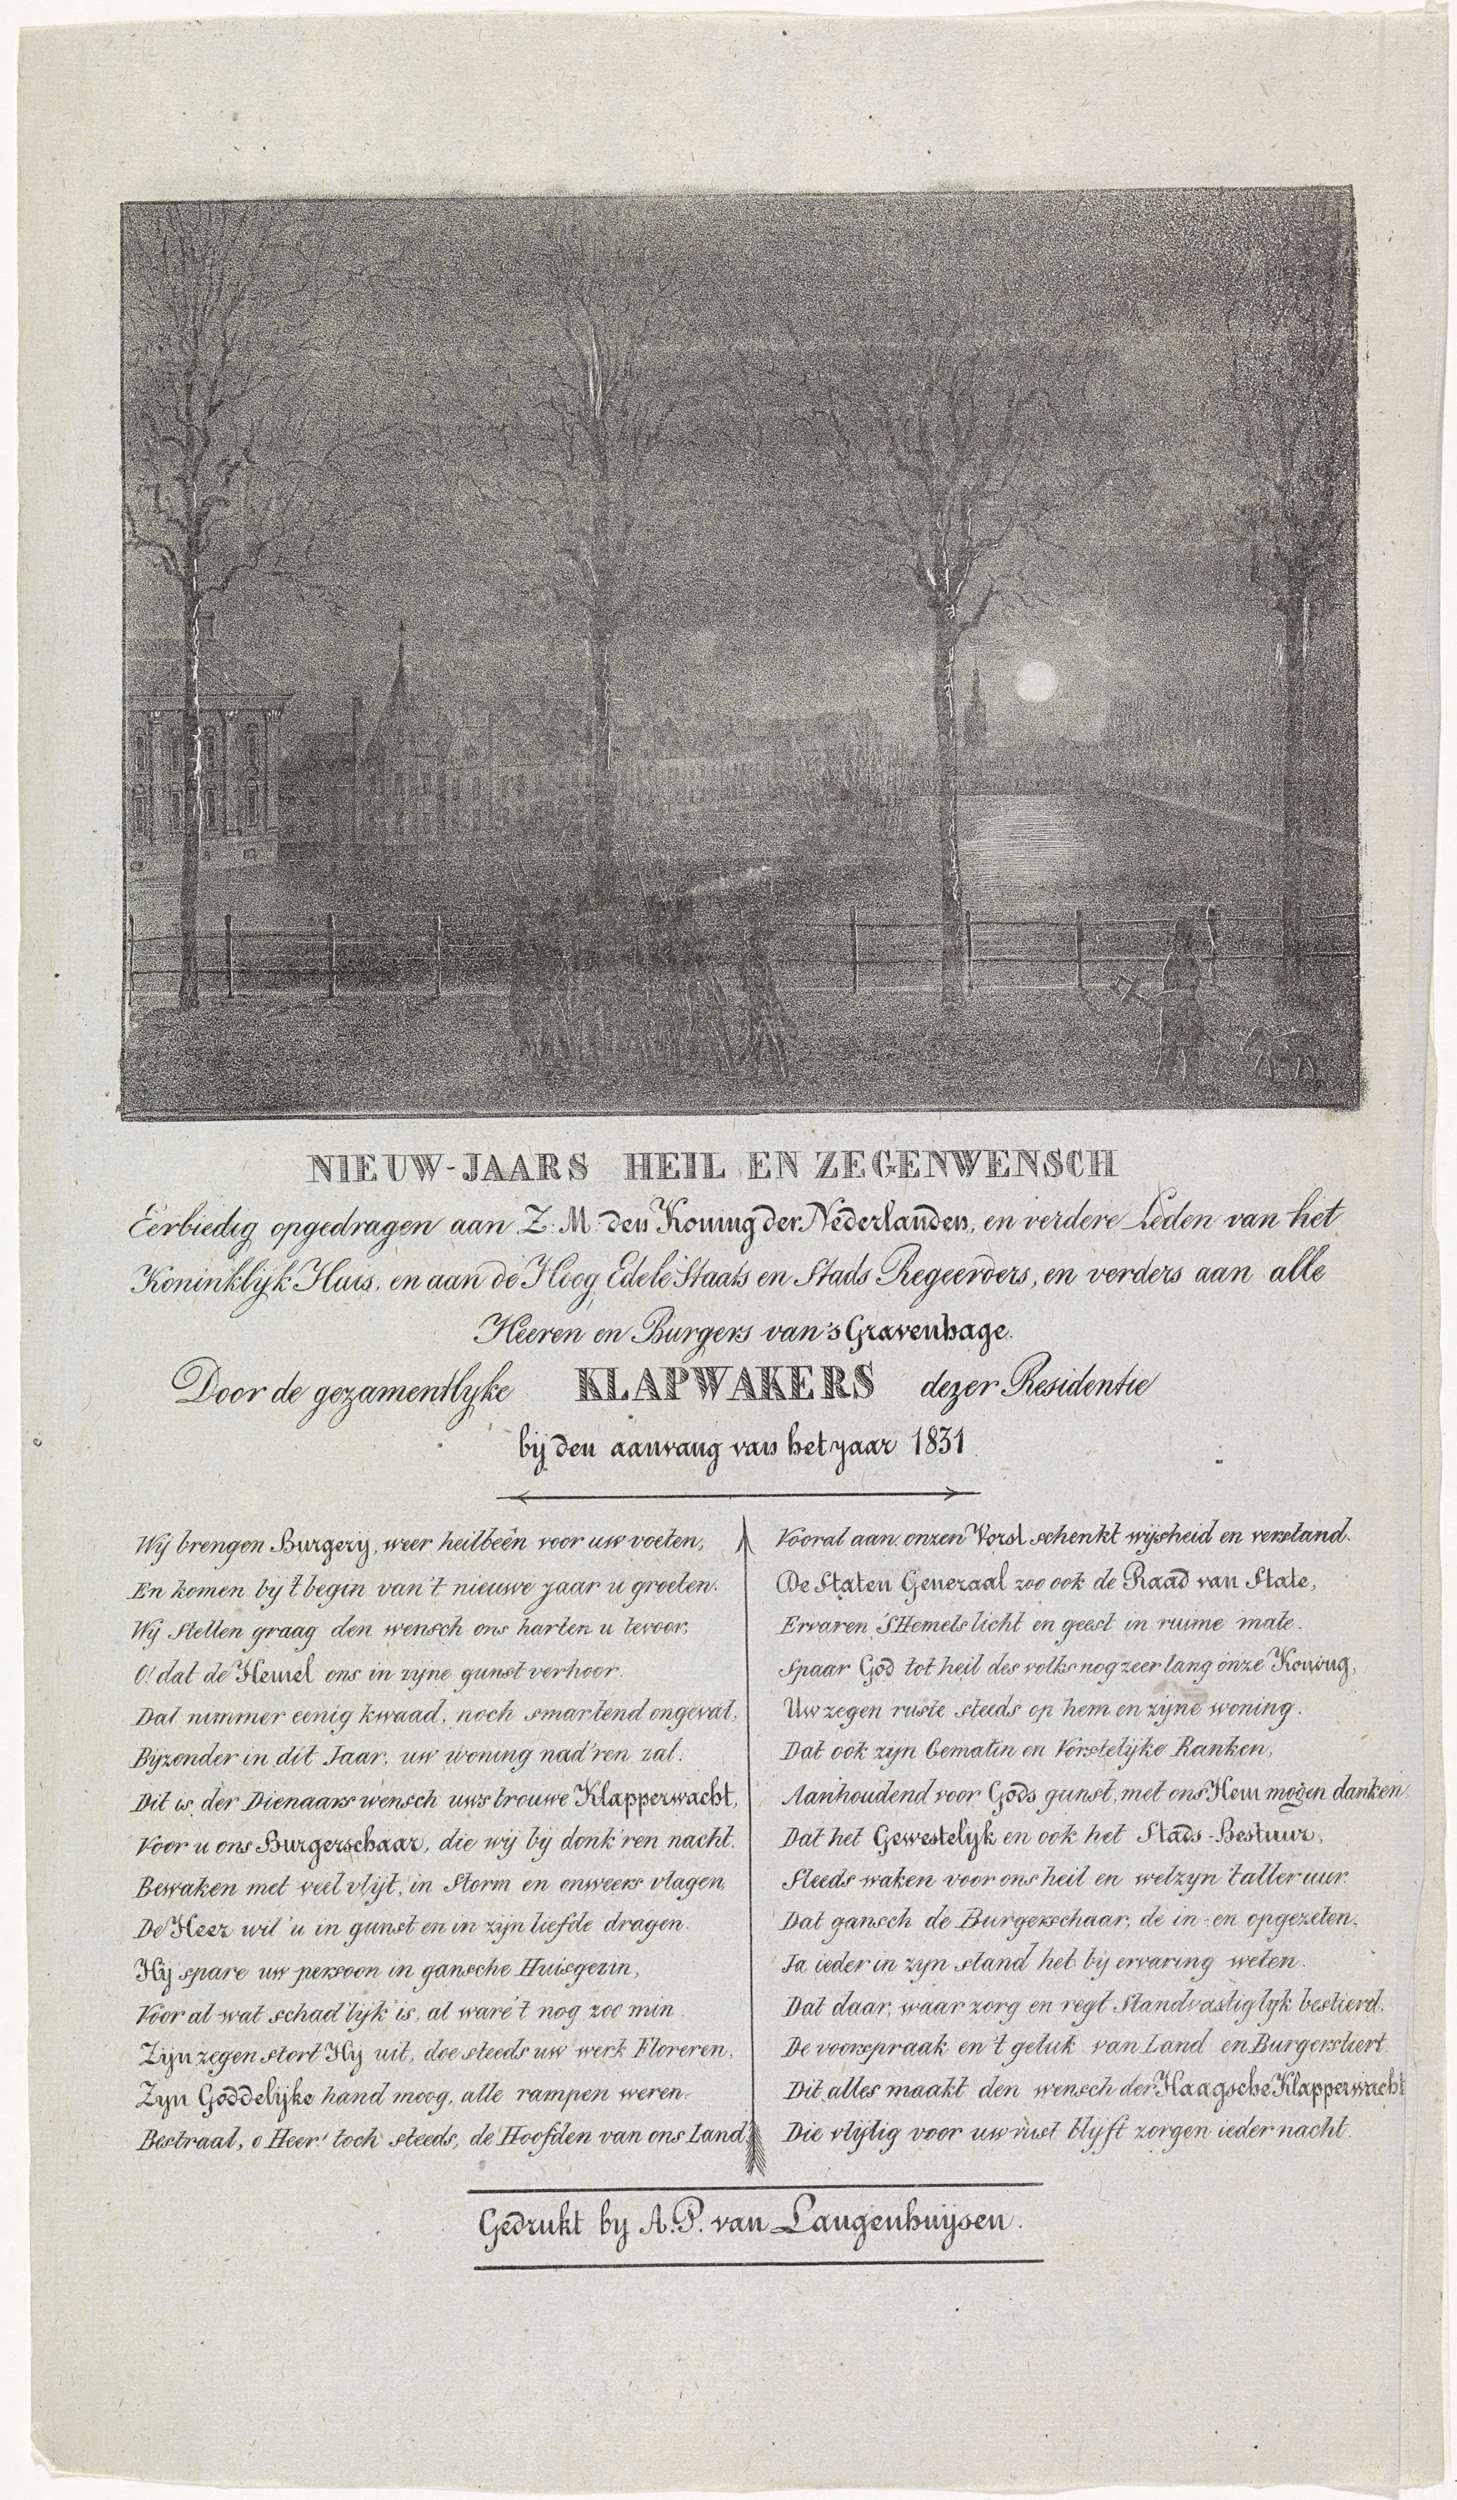 NIEUW-JAARS HEIL EN ZEGENWENSCH
Eerbiedig opgedragen aan Z. M. den Koning der Nederlanden, en verdere Leden van het
Koninklijk Huis, en aan de Hoog Edele Staats en Stads Regeerders, en verders aan alle
Heeren en Burgers van 's Gravenhage.
Door de gezamentlyke KLAPWAKERS dezer Residentie
bij den aanvang van het yaar 1831
Wij brengen Burgerij, weer heilbeên voor uw voeten,
En komen bij 't begin van 't nieuwe jaar u groeten.
Wij stellen graag den wensch ons harten u tevoor,
O! dat de Hemel ons in zijne gunst verhoor.
Dat nimmer eenig kwaad, noch smartend ongeval,
Bijzonder in dit Jaar, uw woning nad'ren zal.
Dit is der Dienaars wensch uws trouwe Klapperwacht,
Voor u ons Burgerschaar, die wij bij donk'ren nacht.
Bewaken met veel vlijt, in Storm en onweers vlagen,
De Heer wil u in gunst en in zijn liefde dragen.
Hij spare uw persoon in gansche Huisgezin,
Voor al wat schad'lijk is, al ware't nog zoo min.
Zijn zegen stort Hij uit, doe steeds uw werk Floreren,
Zyn Goddelijke hand moog, alle rampen weren.
Bestraal, o Heer! toch steeds, de Hoofden van ons Land,
Vooral aan onzen Vorst schenkt wijsheid en verstand.
De Staten Generaal zoo ook de Raad van State,
Ervaren 'S Hemels licht en geest in ruime mate.
Spaar God tot heil des volks nog zeer lang onze Koning,
Uw zegen ruste steeds op hem en zijne woning.
Dat ook zijn Gemalin en Vorstelijke Ranken,
Aanhoudend voor Gods gunst, met ons Hem mogen danken.
Dat het Gewestelijk en ook het Stads-Bestuur,
Steeds waken voor ons heil en welzyn 't aller uur.
Dat gansch de Burgerschaar, de in- en opgezeten,
Ja ieder in zyn stand het by ervaring weten.
Dat daar, waar zorg en regt Standvastiglyk bestierd,
De voorspraak en 't geluk van Land en Burgerstiert.
Dit alles maakt den wensch der Haagsche Klapperwacht
Die vlijtig voor uw rust blyft zorgen ieder nacht.
Gedrukt by A. P. van Langenhuijsen.